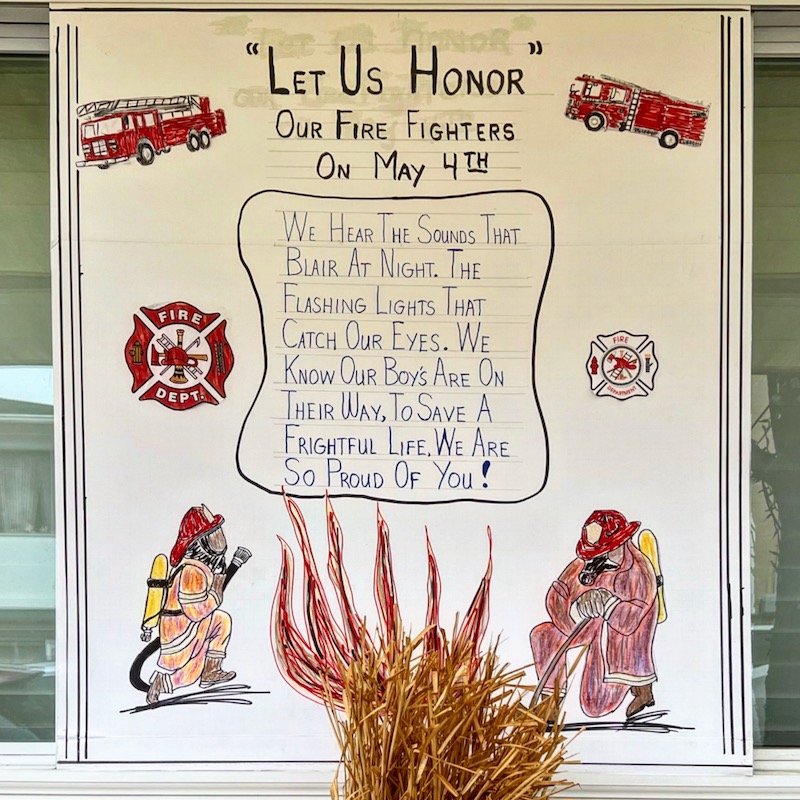 “LET US HONOR”
OUR FIRE FIGHTERS
ON MAY 4TH
WE HEAR THE SOUNDS THAT
BLAIR AT NIGHT. THE
FLASHING LIGHTS THAT
CATCH OUR EYES. WE
KNOW OUR BOY'S ARE ON
THEIR WAY, TO SAVE A
FRIGHTFUL LIFE, WE ARE
SO PROUD OF YOU!
FIRE
DEPT.
FIRE
DEPARTMENT